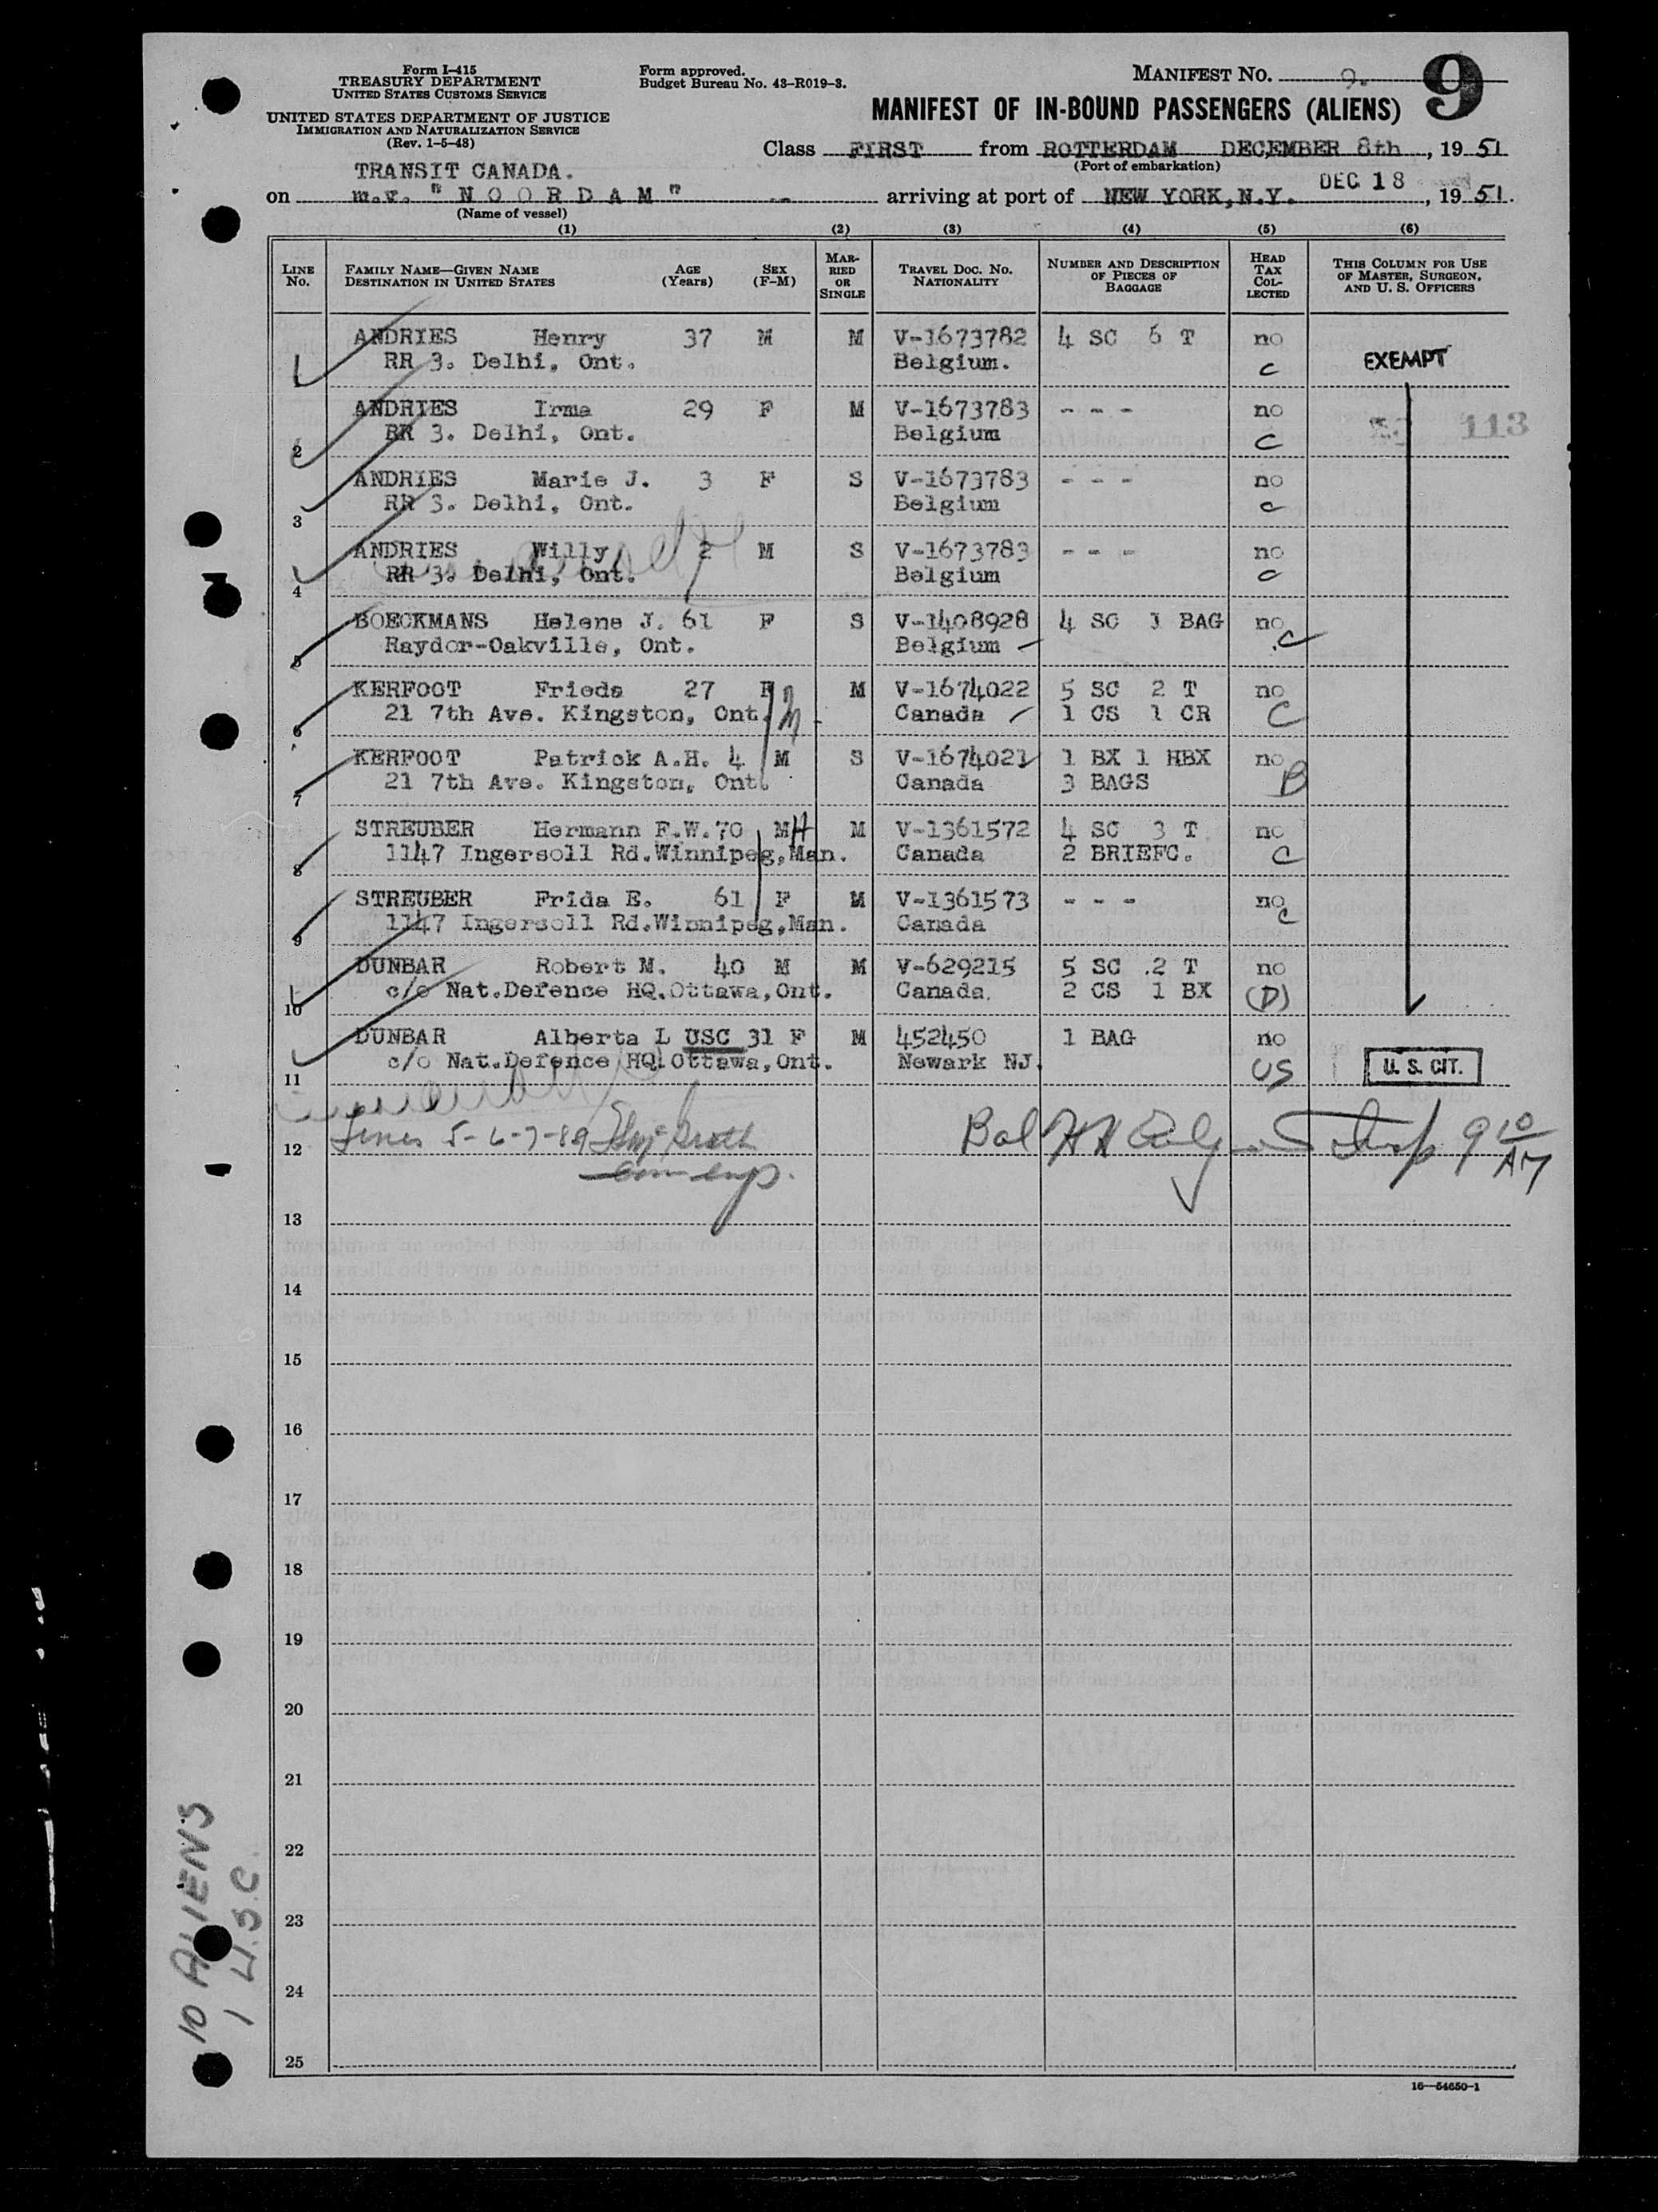 Form I-415
TREASURY DEPARTMENT
UNITED STATES CUSTOMS SERVICE
UNITED STATES DEPARTMENT OF JUSTICE
IMMIGRATION AND NATURALIZATION SERVICE
(Rev. 1-5-48)
Form approved.
Budget Bureau No. 43-R019-3.
MANIFEST NO. 9. 9
MANIFEST OF IN-BOUND PASSENGERS (ALIENS)
Class FIRST from ROTTERDAM DECEMBER 8th, 1951
(Port of embarkation)
TRANSIT CANADA.
on m.v. "NOORDAM" arriving at port of NEW YORK, N.Y. DEC 18, 1951.
(Name of vessel)
(1) (2) (3) (4) (5) (6)
LINE No. FAMILY NAME—GIVEN NAME DESTINATION IN UNITED STATES AGE (Years) SEX (F-M) MARRIED OR SINGLE TRAVEL DOC. NO. NATIONALITY NUMBER AND DESCRIPTION OF PIECES OF BAGGAGE HEAD TAX COLLECTED THIS COLUMN FOR USE OF MASTER, SURGEON, AND U. S. OFFICERS
ANDRIES Henry 37 M M V-1673782 4 SC 6 T no
RR 3. Delhi, Ont. Belgium. C EXEMPT
ANDRIES Irma 29 F M V-1673783 - - - no 113
2 RR 3. Delhi, Ont. Belgium C
ANDRIES Marie J. 3 F S V-1673783 - - - no
3 RR 3. Delhi, Ont. Belgium C
ANDRIES Willy 2 M S V-1673783 - - - no
4 RR 3. Delhi, Ont. Belgium C
BOECKMANS Helene J. 61 F S V-1408928 4 SC 1 BAG no
5 Raydor-Oakville, Ont. Belgium C
KERFOOT Frieda 27 F M V-1674022 5 SC 2 T no
6 21 7th Ave. Kingston, Ont. Canada 1 CS 1 CR C
KERFOOT Patrick A.H. 4 M S V-1674021 1 BX 1 HBX no
7 21 7th Ave. Kingston, Ont. Canada 3 BAGS B
STREUBER Hermann F.W. 70 M H M V-1361572 4 SC 3 T no
8 1147 Ingersoll Rd.Winnipeg,Man. Canada 2 BRIEFC. C
STREUBER Frida E. 61 F M V-1361573 - - - no
9 1147 Ingersoll Rd.Winnipeg,Man. Canada C
DUNBAR Robert M. 40 M M V-629215 5 SC 2 T no
10 c/o Nat.Defence HQ.Ottawa,Ont. Canada. 2 CS 1 BX (D)
DUNBAR Alberta L USC 31 F M 452450 1 BAG no
11 c/o Nat.Defence HQ.Ottawa,Ont. Newark NJ. US U. S. CIT.
12 Lines 5-6-7-8-9 Bal Insp 9 10 AM
13
14
15
16
17
18
19
20
21
22
23
24
25
16—54650-1
10 ALIENS
1 U.S.C.